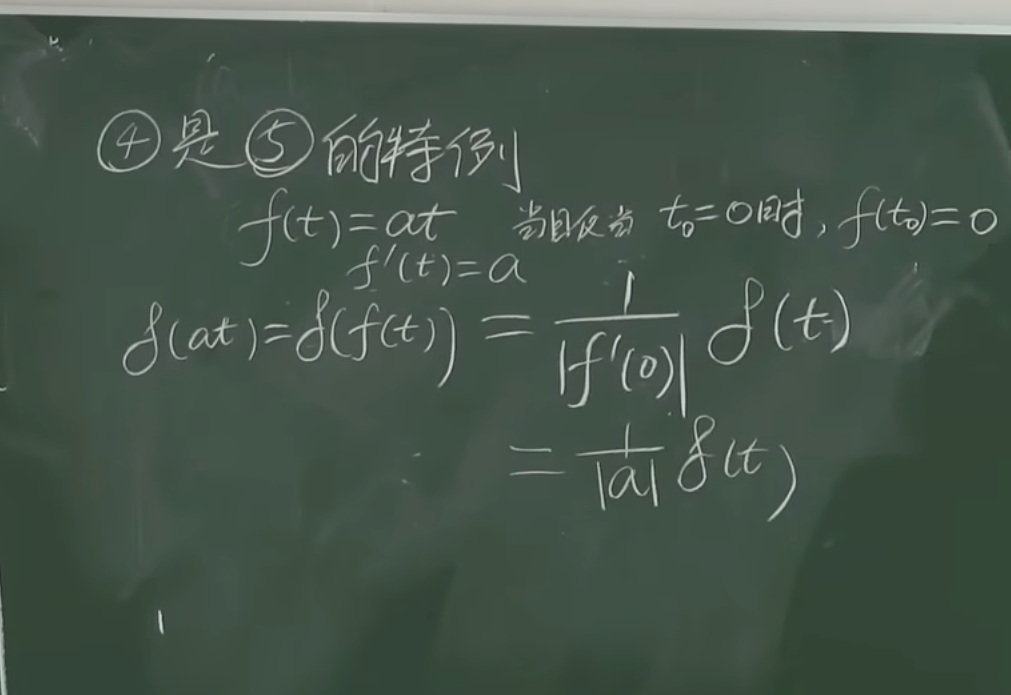 ④是⑤的特例
f(t)=at 当且仅当 t₀=0时, f(t₀)=0
f'(t)=a
δ(at)=δ(f(t))=\frac{1}{|f'(0)|}δ(t)
=\frac{1}{|a|}δ(t)